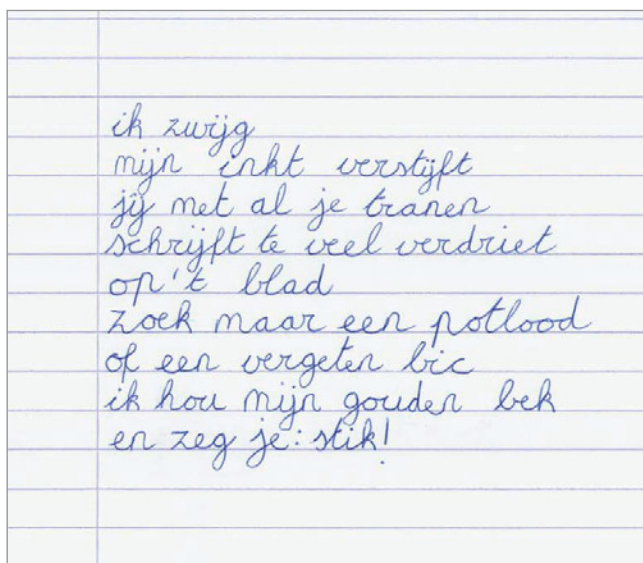 ik zwijg
mijn inkt verstijft
jij met al je tranen
schrijft te veel verdriet
op 't blad
zoek maar een potlood
of een vergeten bic
ik hou mijn gouden bek
en zeg je: stik!